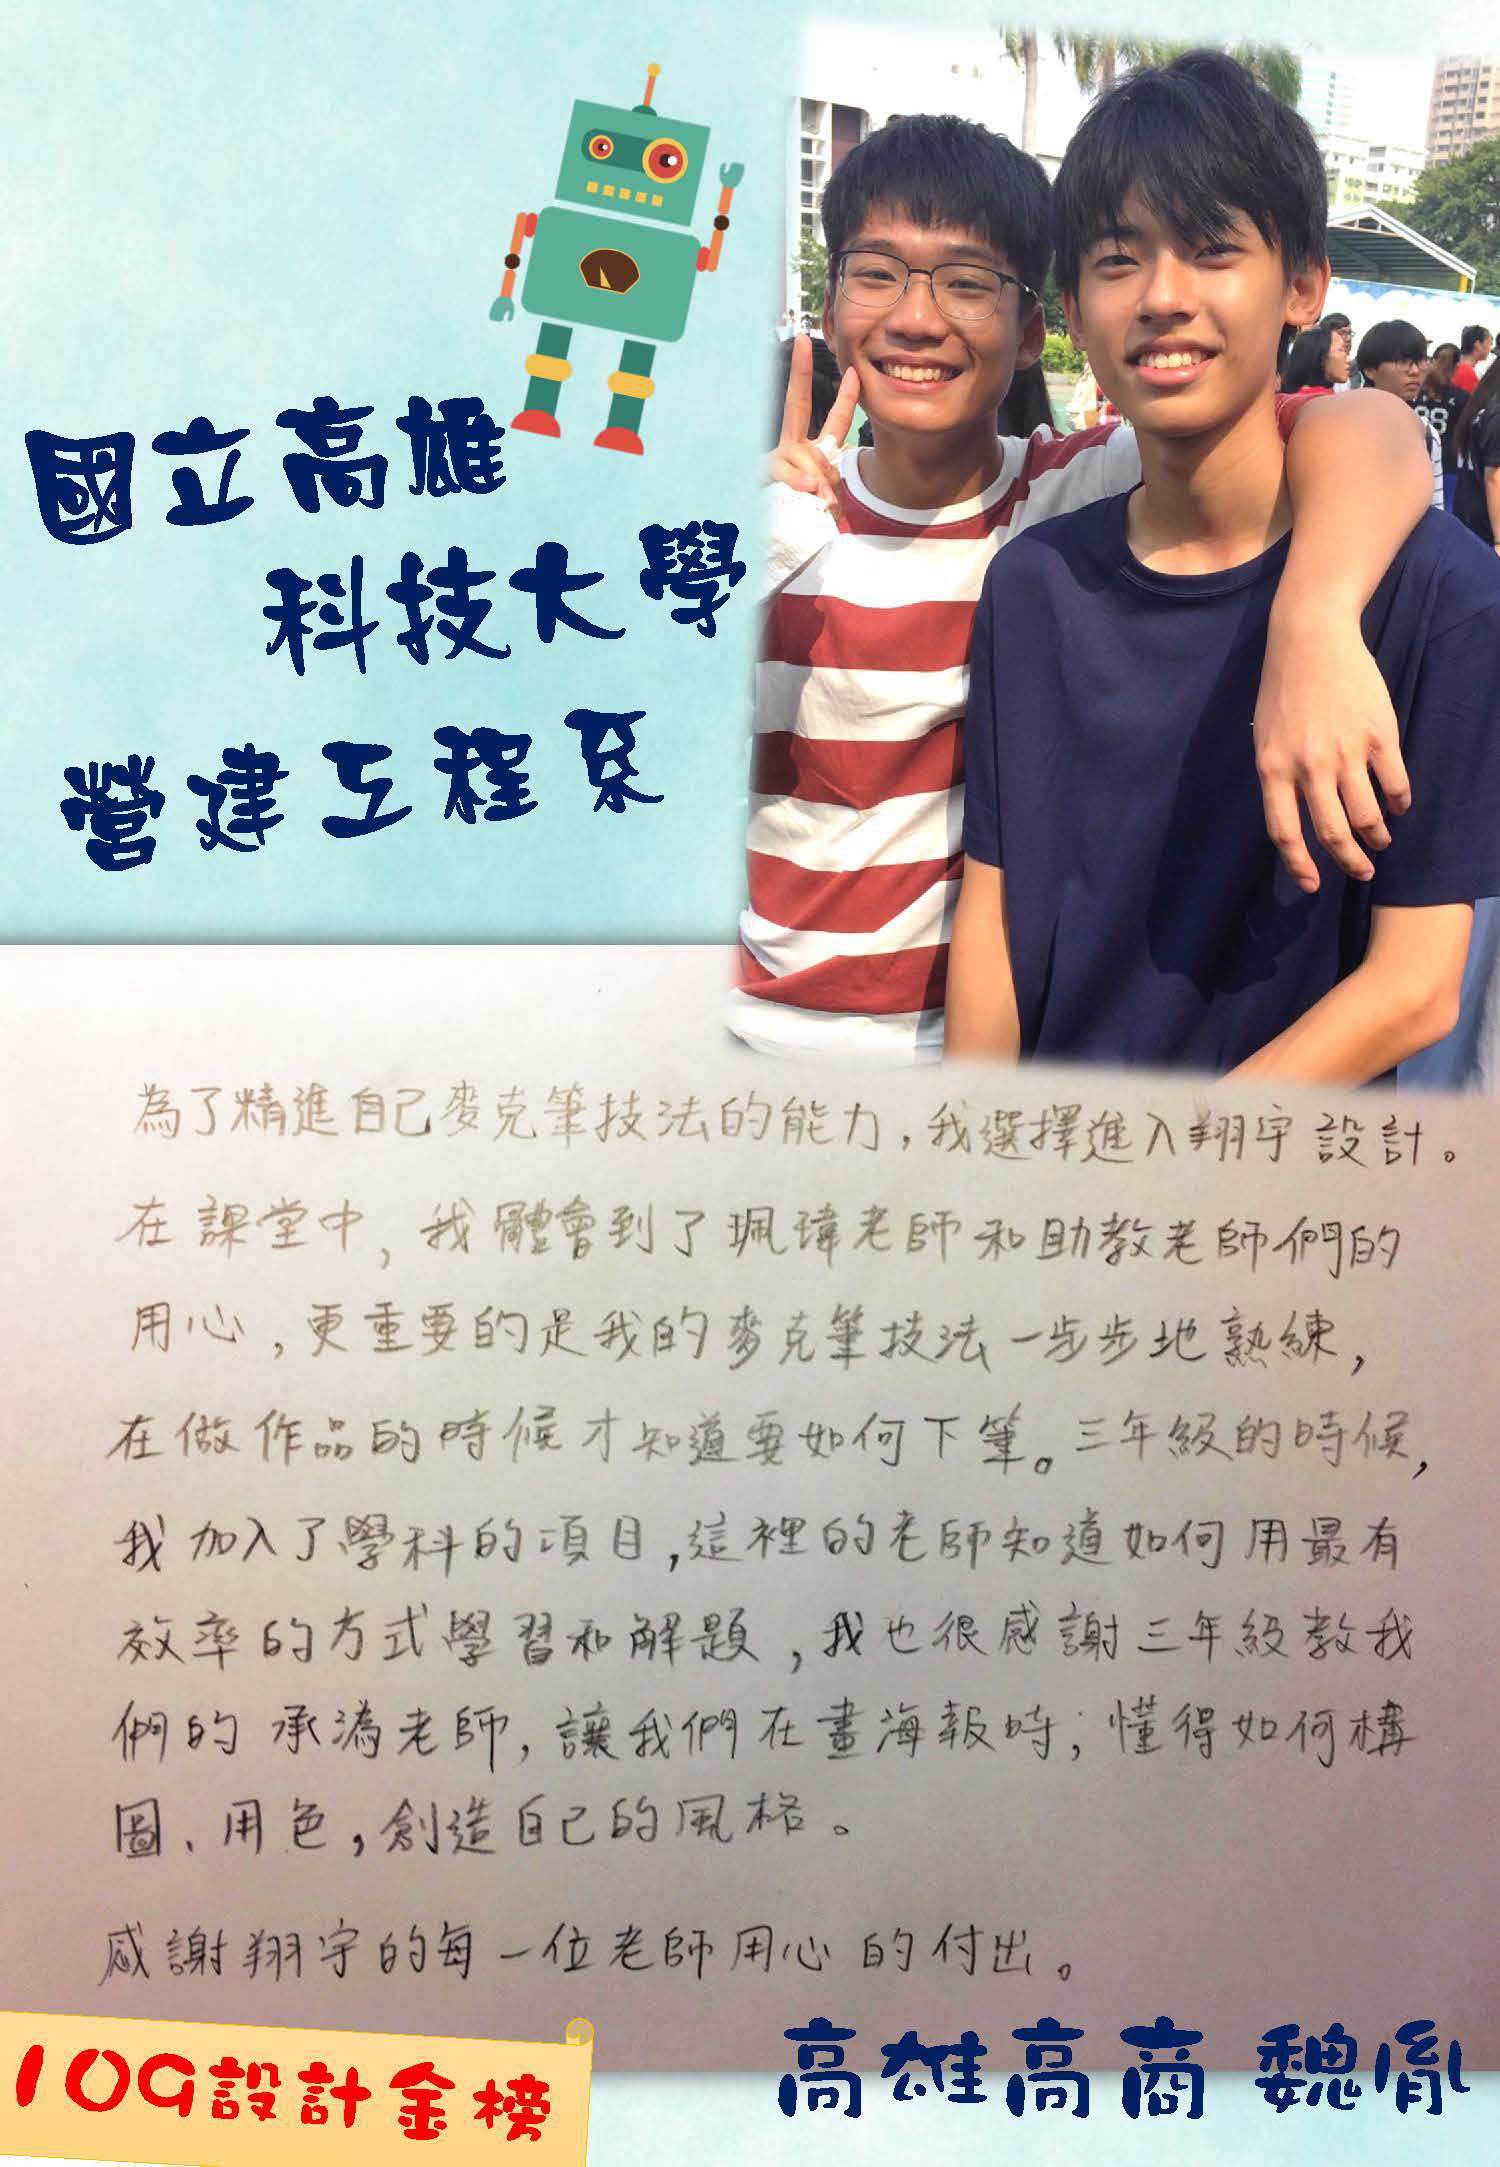 國立高雄
科技大學
營建工程系
為了精進自己麥克筆技法的能力,我選擇進入翔宇設計。
在課堂中,我體會到了珮瑋老師和助教老師們的
用心,更重要的是我的麥克筆技法一步步地熟練,
在做作品的時候才知道要如何下筆。三年級的時候,
我加入了學科的項目,這裡的老師知道如何用最有
效率的方式學習和解題,我也很感謝三年級教我
們的承溈老師,讓我們在畫海報時;懂得如何構
圖、用色,創造自己的風格。
感謝翔宇的每一位老師用心的付出。
109設計金榜
高雄高商 魏胤